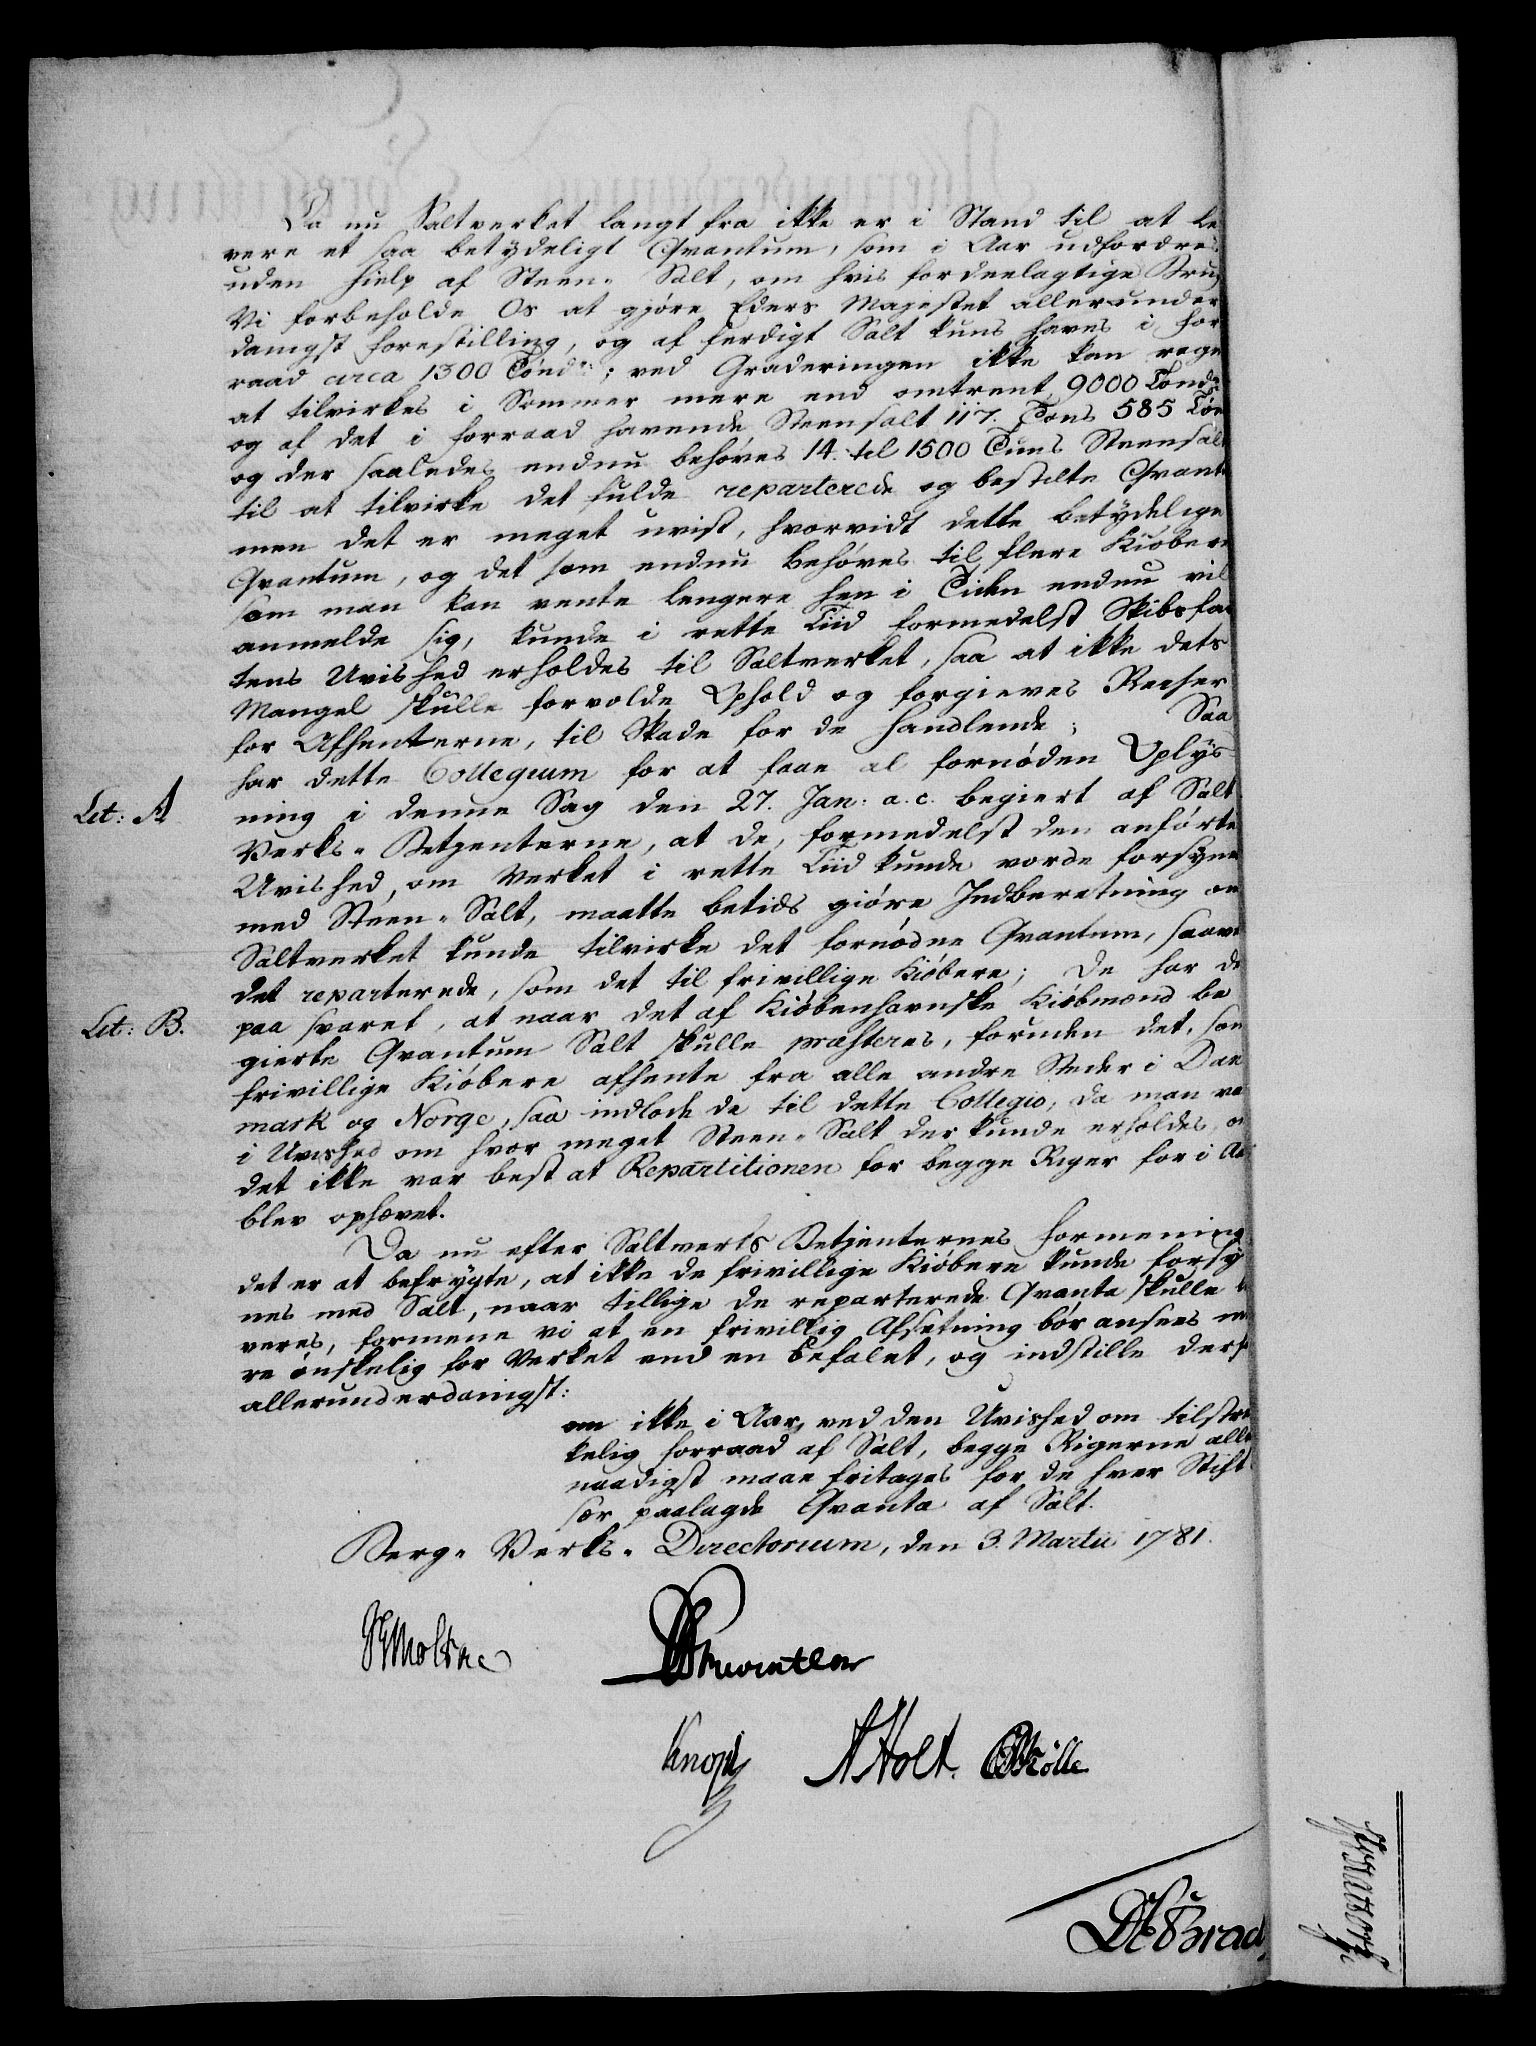 Da nu Saltverket langt fra ikke er i Stand til at le
vere et saa betydeligt Qvantum, som i Aar udfordres
uden hielp af Steen-Salt, om hvis fordeelagtige Brug
Vi forbeholde Os at gjøre Eders Majestet allerunder
danigst forestilling, og af ferdigt Salt kuns haves i for
raad circa 1300 Tønder; ved Graderingen ikke kan regn
at tilvirkes i Sommer mere end omtrent 9000 Tønder
og af det i forraad havende Steensalt 117. Tons 585 Tøn
og der saaledes endnu behøves 14. til 1500 Tuns Steensalt
til at tilvirke det fulde reparterede og bestilte Qvant
men det er meget uvist, hvorvidt dette betydelige
Qvantum, og det som endnu behøves til flere Kiøbere
som man kan vente lengere hen i Tiden endnu vil
anmelde sig, kunde i rette Tiid formedelst Skibsfar
tens Uvished erholdes til Saltverket, saa at ikke dets
Mangel skulle forvolde Ophold og forgieves Reeser
for Afhenterne, til Skade for de handlende; Saa
har dette Collegium for at faae al fornøden Oplys
Let: A
ning i denne Sag den 27. Jan: a.c. begiert af Salt
Verks-Betjenterne, at de, formedelst den anførte
Uvished, om Verket i rette Tiid kunde vorde forsyne
med Steen-Salt, maatte betids giøre Indberetning om
Saltverket kunde tilvirke det fornødne Qvantum, saave
det reparterede, som det til frivillige Kiøbere; De har de
Let: B.
paa svaret, at naar det af Kiøbenhavnske Kiøbmænd be
gierte Qvantum Salt skulle præsteres, foruden det, som
frivillige Kiøbere afhente fra alle andre Steder i Dan
mark og Norge, saa indlode de til dette Collegio, da man va
i Uvished om hvor meget Steen-Salt der kunde erholdes, o
det ikke var best at Repartitionen for begge Riger for i Aa
blev ophævet.
Da nu efter Saltverks Betjenternes formening
det er at befrygte, at ikke de frivillige Kiøbere kunde forsy
nes med Salt, naar tillige de reparterede Qvanta skulle l
veres, formene vi at en frivillig Afsetning bør ansees me
re ønskelig for Verket end en befalet, og indstille derfo
allerunderdanigst:
om ikke i Aar, ved den Uvished om tilstræ
kelig forraad af Salt, begge Rigerne aller
naadigst maae fritages for de hver Stift
sær paalagde Qvanta af Salt.
Berg-Verks-Directorium, den 3. Martii 1781.
Moltke
Knoph
AHolt.